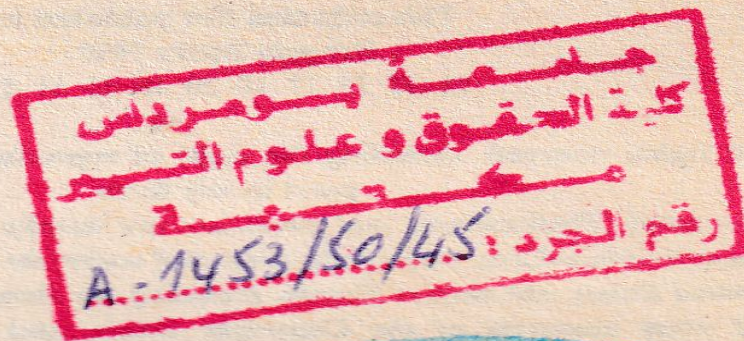 جامعة بومرداس
كلية الحقوق و علوم التسيير
مكتبة
رقم الجرد : A-1453/50/45